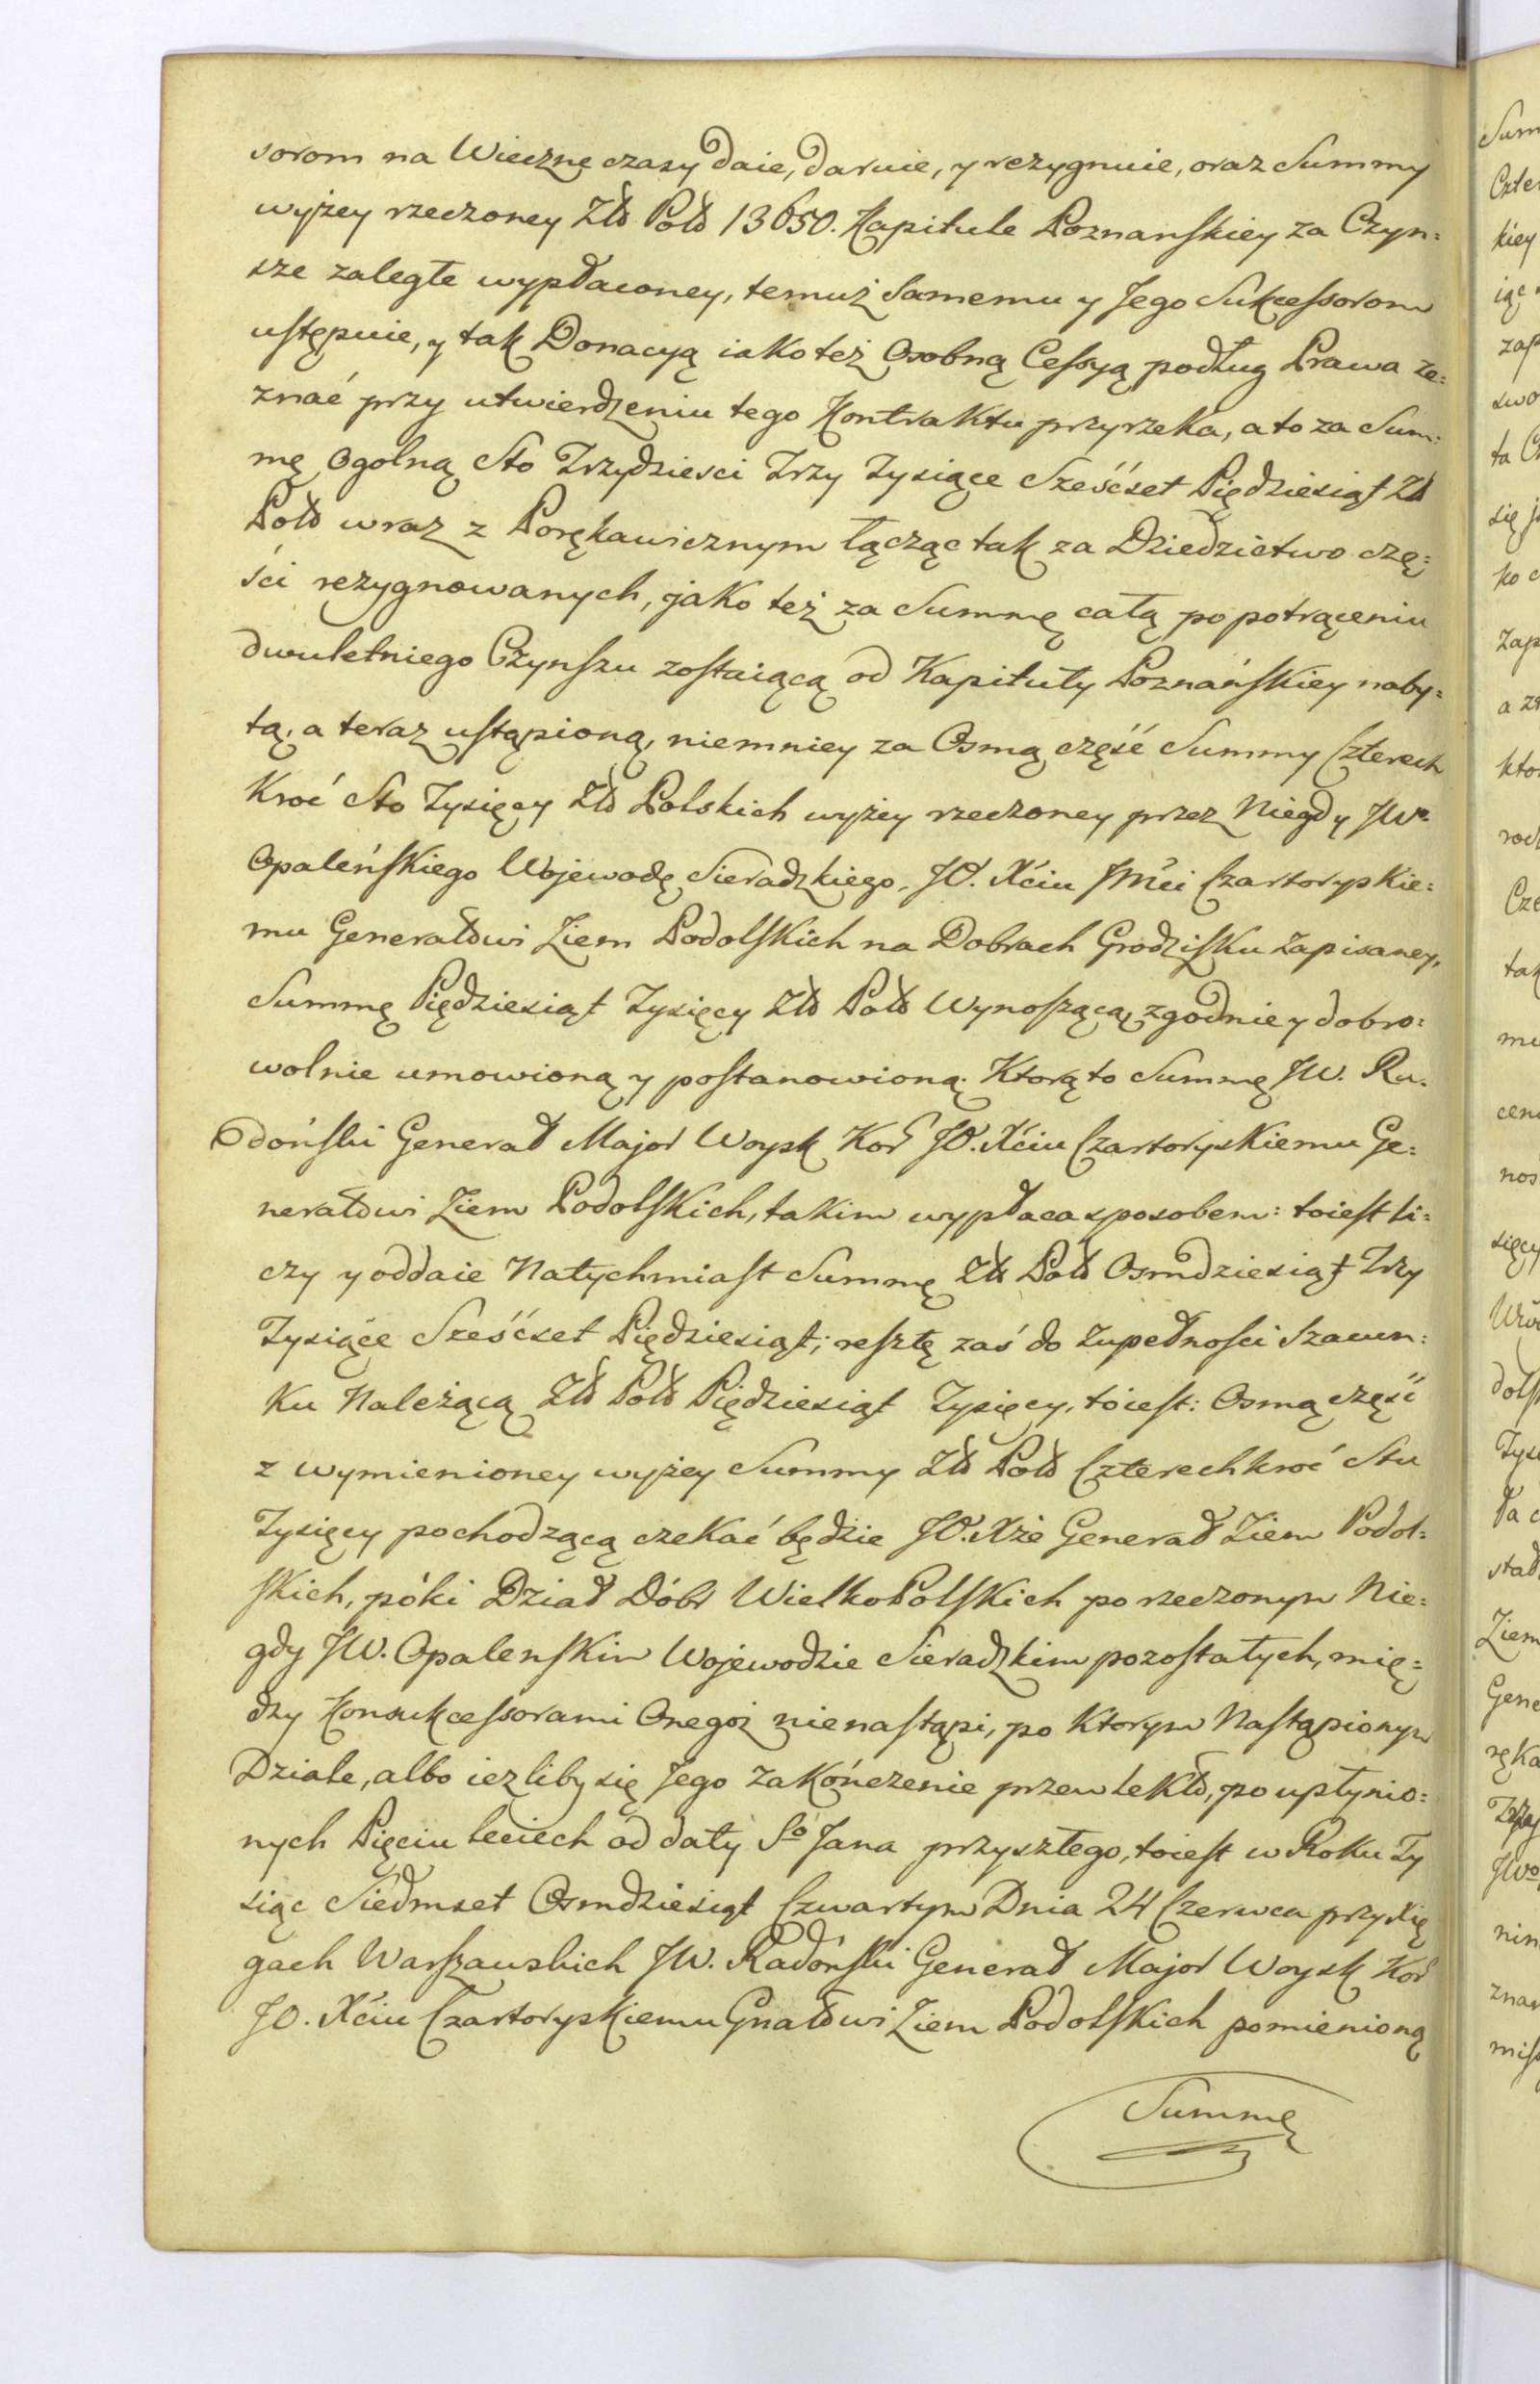 sorom na Wieczne czasy daie, daruie, y rezygnuie, oraz Summy
wyżey rzeczoney Złł Poll 13650. Kapitule Poznanskiey za Czyn:
sze zaległe wypłaconey, temuż Samemu y Jego Sukcessorom
ustępuie, y tak Donacyą iako też Osobną Cessyą podług Prawa ze:
znać przy utwierdzeniu tego Kontraktu przyrzeka, a to za Sum:
mę Ogolną Sto Trzydziesci Trzy Tysiące Sześćset Pięćdziesiąt Zł
Poll wraz z Porękawicznym łącząc tak za Dziedzictwo czę:
ści rezygnowanych, jako też za Summę całą po potrąceniu
dwuletniego Czynszu zostaiącą od Kapituły Poznańskiey naby:
tą, a teraz ustąpioną, niemniey za Osmą część Summy Czterech
Kroć Sto Tysięcy Złł Polskich wyżey rzeczoney przez Niegdy JWo
Opaleńskiego Wojewodę Sieradzkiego, JO. Xćiu JMći Czartoryskie:
mu Generałowi Ziem Podolskich na Dobrach Grodzisku zapisaney,
Summę Pięćdziesiąt Tysięcy Złł Poll Wynoszącą, zgodnie y dobro:
wolnie umowioną y postanowioną. Ktorą to Summę JW. Ra:
doński Generał Major Woysk Kor JO. Xćiu Czartoryskiemu Ge:
nerałowi Ziem Podolskich, takim wypłaca sposobem: toiest li:
czy y oddaie Natychmiast Summę Złł Poll Osmdziesiąt Trzy
Tysiące Sześćset Pięćdziesiąt; resztę zaś do zupełności Szacun:
ku Należącą Złł Poll Pięćdziesiąt Tysięcy, toiest: Osmą część
z wymienioney wyżey Summy Złł Poll Czterechkroć Stu
Tysięcy pochodzącą czekać będzie JO. Xże Generał Ziem Podol:
skich, póki Dział Dóbr WielkoPolskich po rzeczonym Nie:
gdy JW. Opalenskim Wojewodzie Sieradzkim pozostałych, mię:
dzy Konsukcessorami Onegoż nienastąpi, po ktorym Nastąpionym
Dziale, albo iezliby się Jego zakończenie przewlekło, po upłynio:
nych Pięciu leciech od daty So Jana przyszłego, toiest w Roku Ty
siąc Siedmset Osmdziesiąt Czwartym Dnia 24 Czerwca przy Xię
gach Warszawskich JW. Radoński Generał Major Woysk Kor
JO. Xćiu Czartoryskiemu Gnałowi Ziem Podolskich pomienioną
Summę